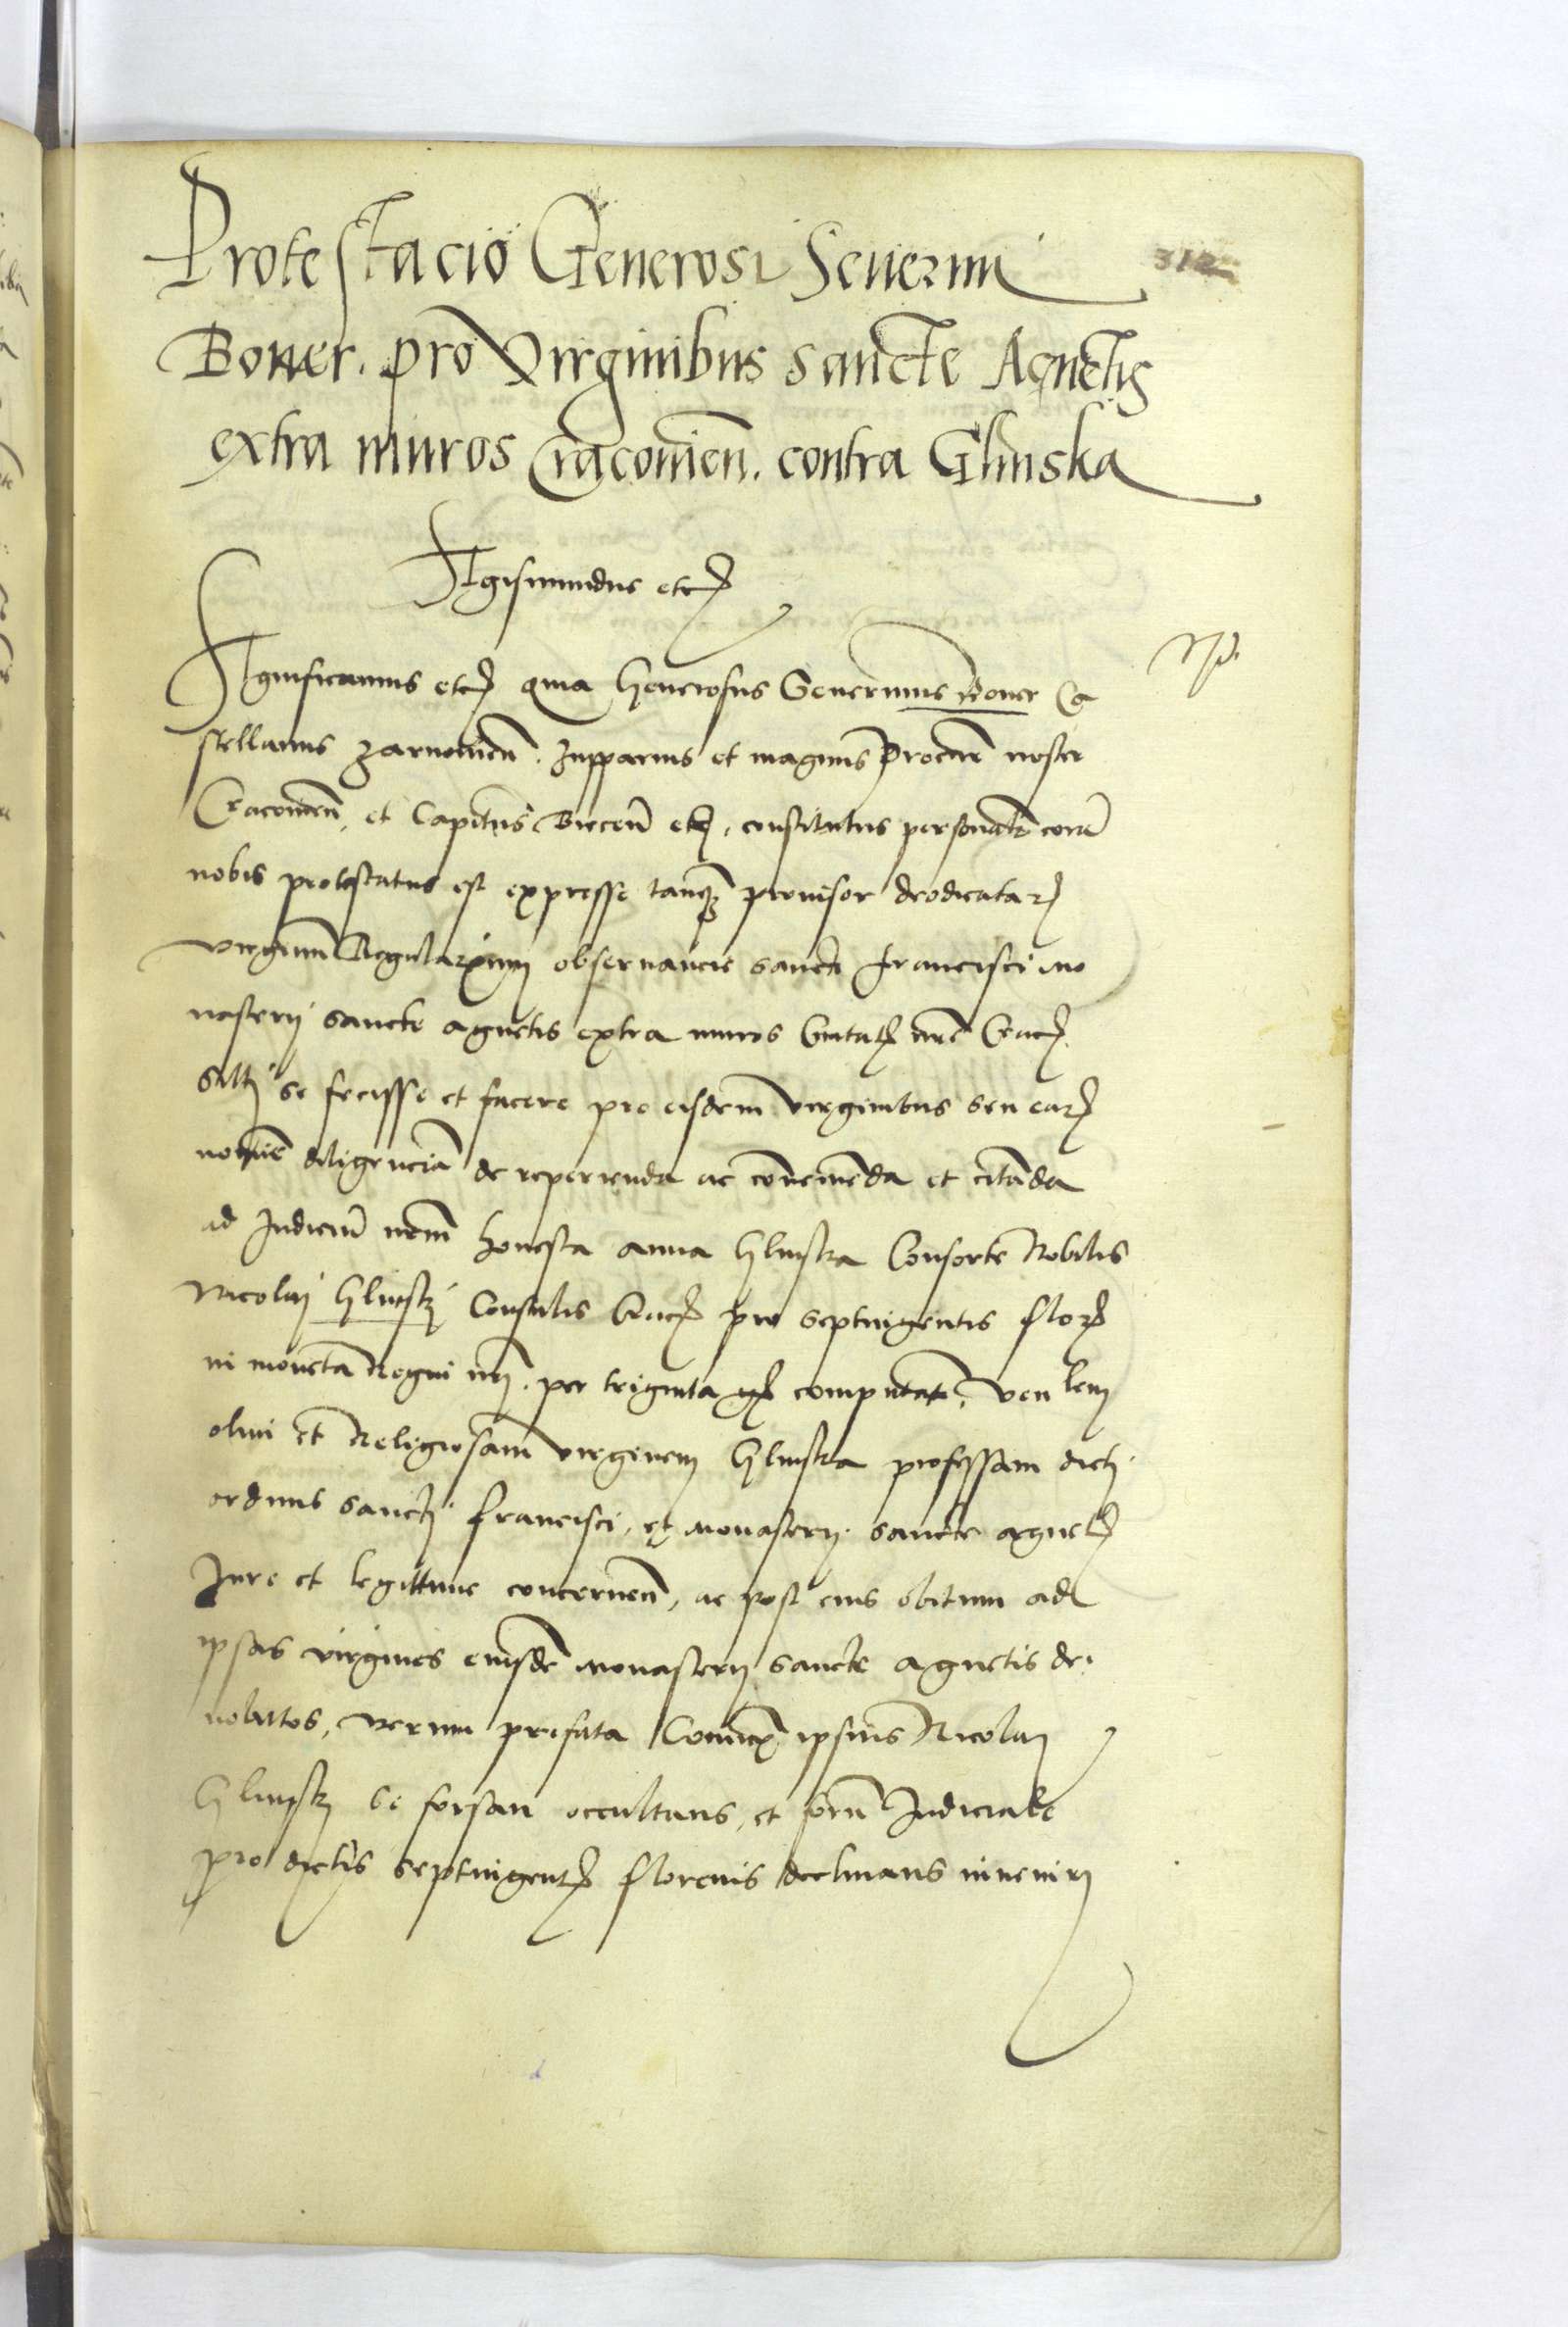 Protestacio Generosi Seuerini
312
Boner. pro Virginibus sancte Agnetis
extra muros Cracouien. contra Glinska
Sigismundus etc
Significamus etc quia Generosus Seuerinus Boner Ca
stellanus Zarnouien. Zupparius et magnus Procur noster
Cracouien, et Capitus Biecen etc, constitutus personalr coram
nobis protestatus est expresse tanq prouisor deodicatar
virginum Regularium obseruancie sancti Francisci mo
nasterij sancte Agnetis extra muros Ciuitatis nre Crac
se fecisse et facere pro eisdem virginibus seu ear
nomine diligenciam de reperienda ac conuenienda et citanda
ad Iudicium nrm honesta anna Glinska Consorte Nobilis
Nicolai Glinski Consulis Crac pro septuigentis flor
in moneta Regni nri. per triginta gr computat,
olim et Religiosam virginem Glinska professam dicti
ordinis sancti Francisci, et monasterij sancte agnet
Iure et legittime concernen, ac post eius obitum ad
ipsas virgines eiusdem monasterij sancte Agnetis de
uolutos, verum prefata Coniunx ipsius Nicolai
Glinski se forsan occultans, et forum Iudiciale
pro dictis septuigent florenis declinans inueniri